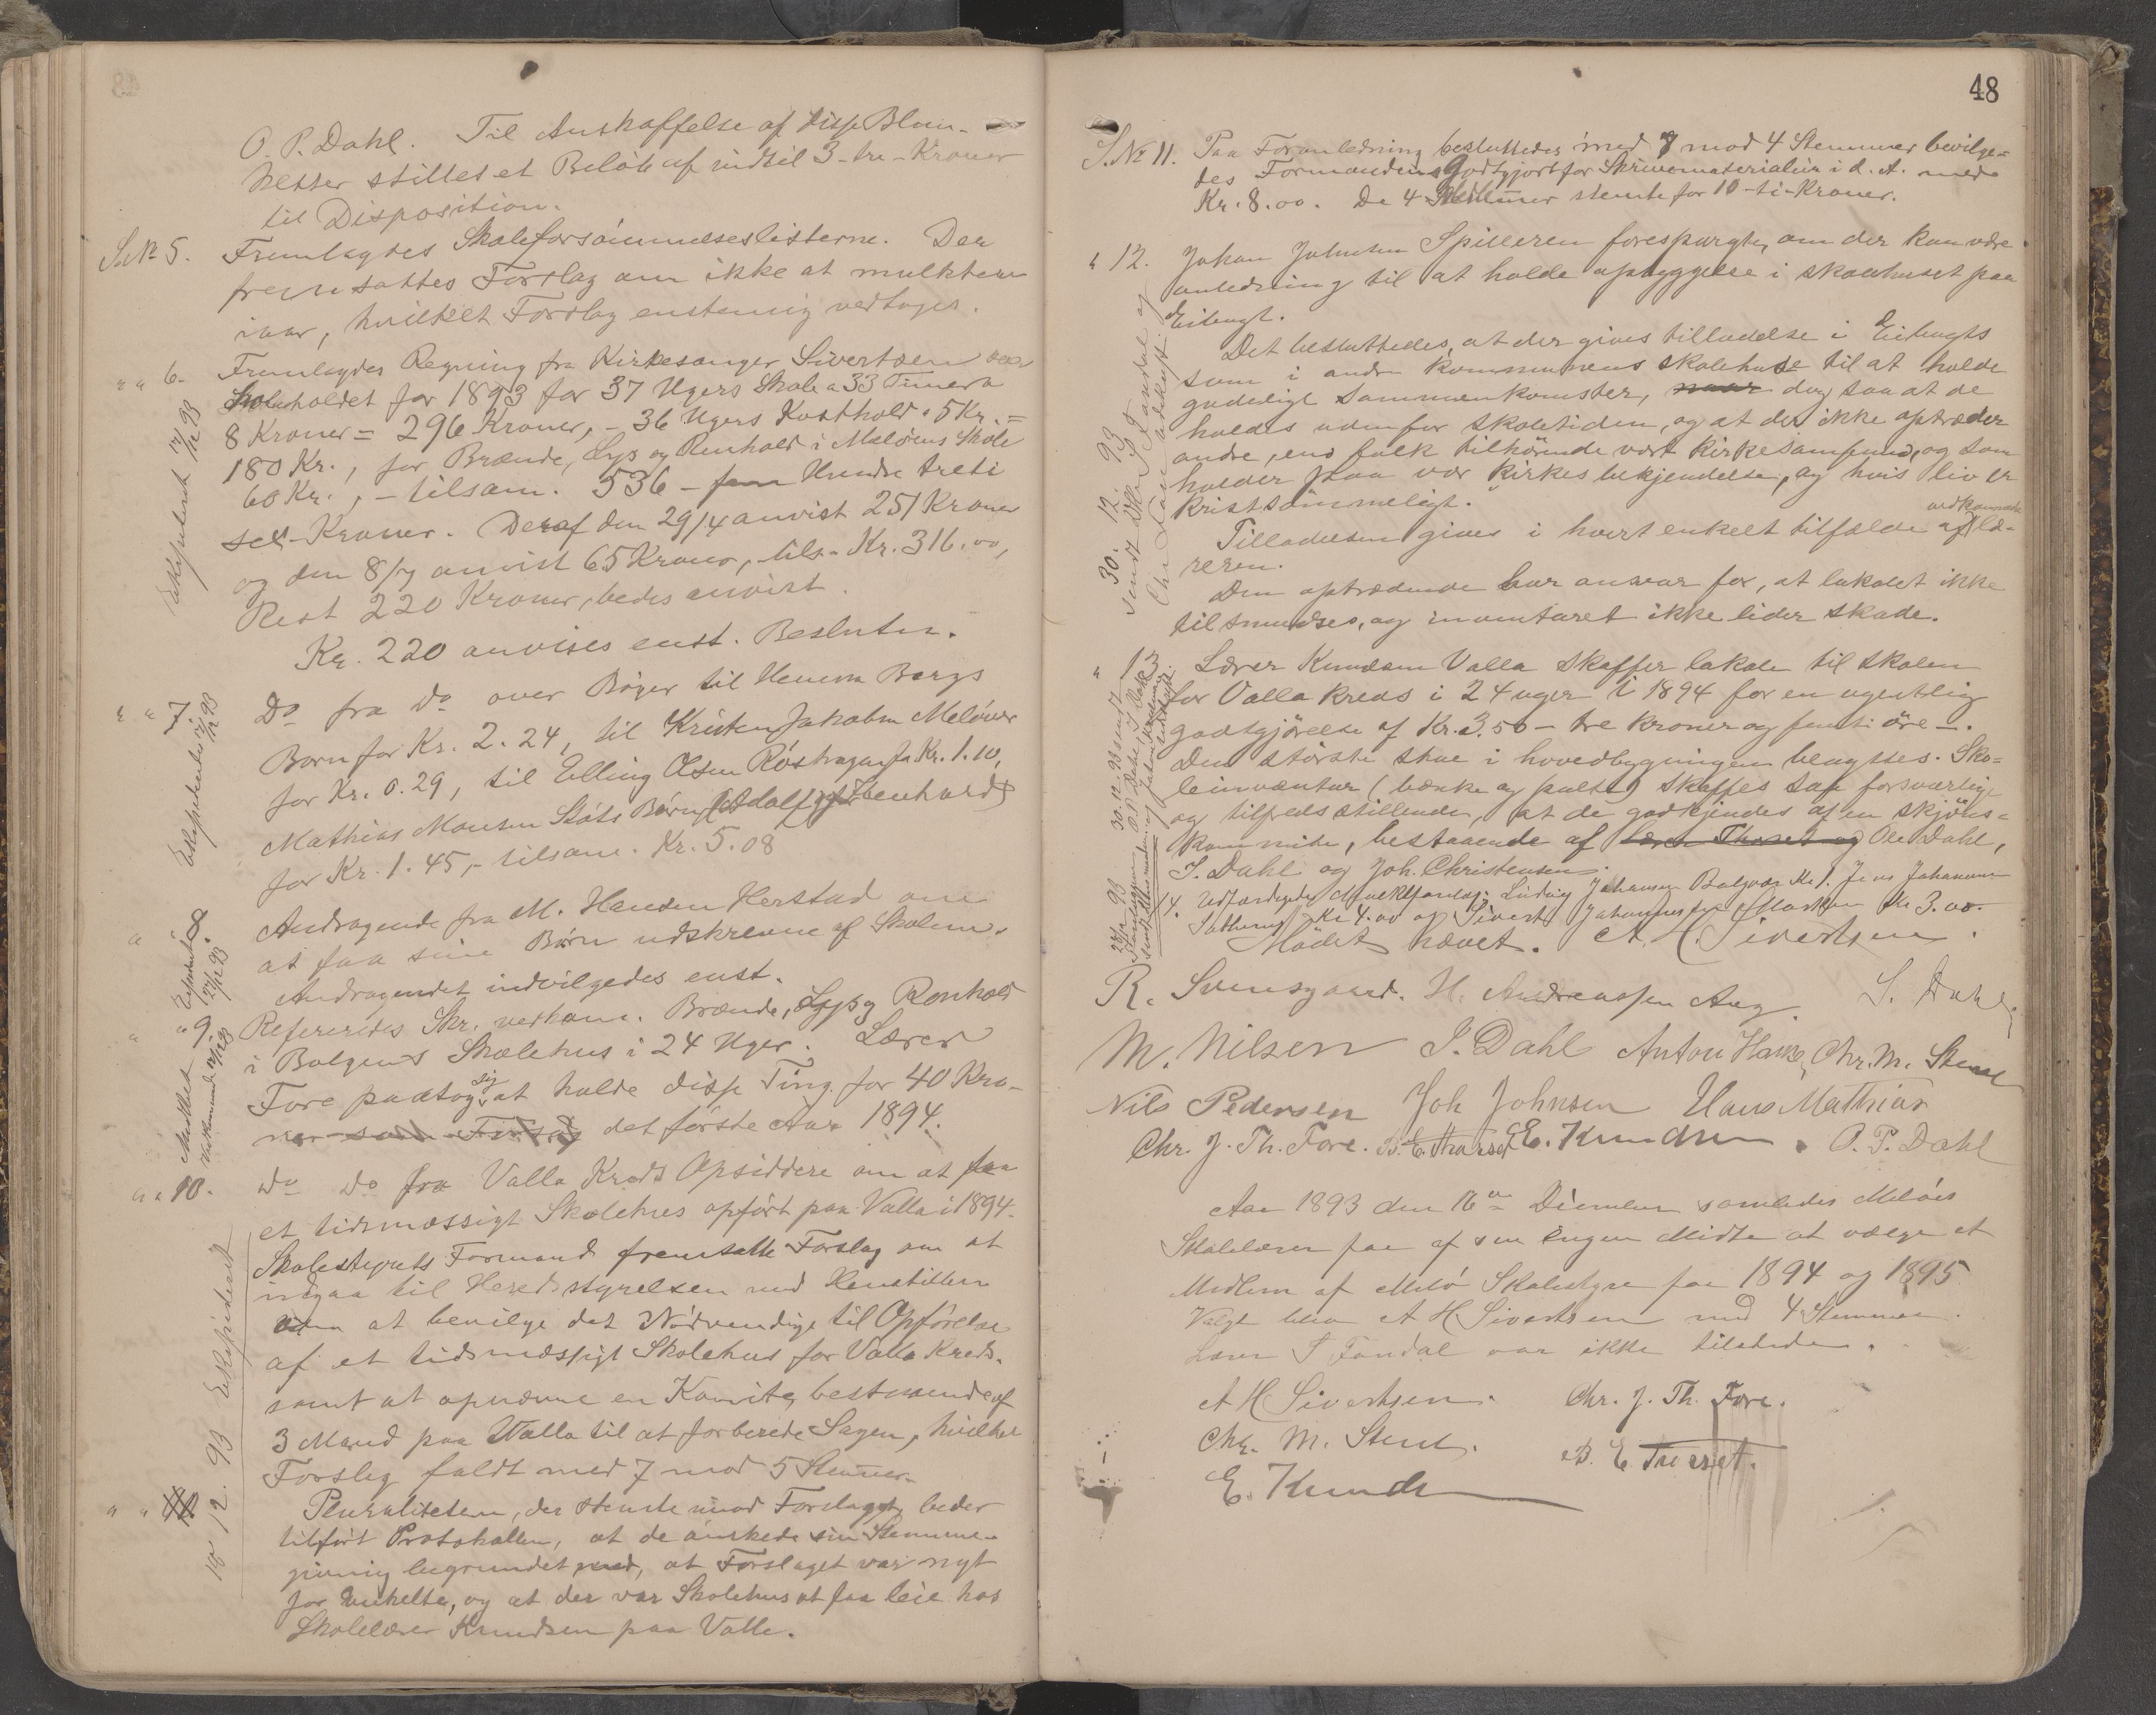 O. P. Dahl. Til Anskaffelse af disse Blan-
ketter stilles et Beløb af indtil 3 - tre - Kroner
til Disposition.
S. № 5. Fremlagdes Skoleforsømmelseslisterne. Der
fremsattes Forslag om ikke at mulktere
iaar, hvilket Forslag enstemig vedtoges.
" " 6. Fremlagdes Regning fra Kirkesanger Sivertsen over
Skoleholdet for 1893 for 37 Ugers Skole a 33 Timer a
8 Kroner = 296 Kroner, - 36 Ugers Kosthold a 5 Kr. =
180 Kr., for Brænde, Lys og Renhold i Meløens Skole
60 Kr., - tilsam. 536 - fem Hundre treti
sex - Kroner. Deraf den 29/4 anvist 251 Kroner
og den 8/7 anvist 65 Kroner, tils. Kr. 316.00,
Rest 220 Kroner, bedes anvist.
Kr. 220 anvises enst. Besluttn.
Ekspederet 17/12 93
" " 7 Do fra do over Bøger til
Børn for Kr. 2.24, til Kristen Jakobsen Meløens
for Kr. 0.29, til Elling Olsen for Kr. 1.10,
Mathias Monsen Støts Børn (Adolf og Ebenhard)
for Kr. 1.45, - tilsam. Kr. 5.08
Ekspederet 17/12 93
" 8 Andragende fra M. Hansen Herstad om
at faa sine Børn udskrevne af Skolen.
Andragendet indvilgedes enst.
Ekspederet 17/12 93
" " 9. Refereredes Skr. vedkom. Brænde, Lys og Renhold
i Bolgens Skolehus i 24 Uger. Lærer
Fore paatog sig at holde disse Ting for 40 Kro-
ner det første Aar 1894.
Meddelt Vedkommende 17/12 93
" " 10. Do do fra Valla Kreds Opsiddere om at faa
et tidsmæssigt Skolehus opført paa Valla i 1894.
Skolestyrets Formand fremsatte Forslag om at
indgaa til Heredsstyrelsen med Henstillen
om at bevilge det Nødvendige til Opførelse
af et tidsmæssigt Skolehus for Valla Kreds.
samt at opnævne en Komite, bestaaende af
3 Mand paa Valla til at forberede Sagen, hvilket
Forslag faldt med 7 mod 5 Stemmer.
Pluraliteten, der stemte imod Forslaget, beder
tilført Protokollen, at de ønskede sin Stemme-
givning begrundet med, at Forslaget var nyt
for Enkelte, og at der var Skolehus at faa leie hos
Skolelærer Knudsen paa Valle.
18 12. 93 Ekspederet
48
S. № 11. Paa Foranledning besluttedes med 7 mod 4 Stemmer bevilge-
des Formanden Godtgjort for Skrivematerialier i d. A. med
Kr. 8.00. De 4 Stemmer stemte for 10 - ti - Kroner.
" 12. Johan Johnsen Spilleren forespurgte, om der kan være
anledning til at holde opbyggelse i skolehuset paa
Eidbugt.
Det besluttedes, at der gives tilladelse i Eidbugts
som i andre kommunens skolehuse til at holde
gudelige sammenkomster, dog saa at de
holdes udenfor skoletiden, og at der ikke optræder
andre, end folk tilhørende vort kirkesamfund, og som
holder paa vor kirkes bekjendelse, og hvis liv er
kristsømmeligt.
Tilladelsen gives i hvert enkelt tilfælde af vedkommende læ-
reren.
Den optrædende har ansvar for, at lokalet ikke
tilsmudses, og inventaret ikke lider skade.
30. 12. 93
" 13. Lærer Knudsen Valla skaffer lokale til skolen
for Valla kreds i 24 uger i 1894 for en ugentlig
godtgjørelse af Kr. 3.50 - tre kroner og femti øre -.
Den største stue i hovedbygningen benyttes. Sko-
leinventar (bænke og pulte) skaffes saa forsvarlige
og tilfredsstillende, at de godkjendes af en skjøns-
kommite, bestaaende af Ole Dahl,
I. Dahl og Joh. Christensen.
14. Udfærdigedes Mulktforelæg: Ludvig Johansen Bolgvær Kr 1. Jens Johansen
Kr 4.00 og Sivert Johannesen Kr 3.00.
Mødet hævet. A. H. Sivertsen.
R. Svensgaard. H. Andreassen Aag. S. Dahl
M. Nilsen I. Dahl Anton Chr. M. Stene
Nils Pedersen Joh Johnsen Hans Mathias
Chr. J. Th. Fore. B. E. Thorset E. Knudsen. O. P. Dahl
Aar 1893 den 16de December samledes Meløes
Skolelærere for af sin Egen Midte at vælge et
Medlem af Melø Skolestyre for 1894 og 1895
Valgt blev A H Sivertsen med 4 Stemmer.
Lærer S Fondal var ikke tilstede.
A H Sivertsen. Chr. J. Th. Fore.
Chr. M. Stene. B. E. Thorset.
E. Knudsen